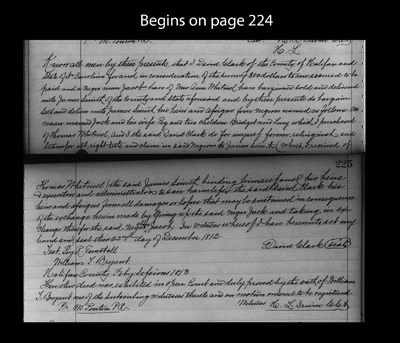 Begins on page 224
H. L
Know all men by these presents that I David Clark of the County of Halifax and
State of N Carolina for and in consideration of the sum of dollars to me secured to be
paid and a Negro man Jacob have of Mrs Ann Whitmel have bargained sold and delivered
unto James Smith of the County and State aforesaid and by these presents do bargain
sell and deliver unto James Smith his heirs and assigns four negroes named as follows
man named Jack and his wife and two children Bridget and Lucy which I purchased
of Thomas Whitmel and I the said David Clark do for myself forever relinquish and
transfer all right title and claim in said Negroes to James Smith which I received of
225
Thomas Whitmel & the said James Smith binding himself and his heirs
executors and administrators to save harmless the said David Clark his
heirs and assigns from all damages or losses that may be sustained in consequence
of the exchange herein made by the said negro Jack and taking in ex
change therefor the said Negro Jacob. In witness whereof I have hereunto set my
hand and seal this 22nd day of December 1812
David Clark (seal)
Test Tunstall
William T. Bryant
Halifax County February Sessions 1813
Then this deed was exhibited in open Court and duly proved by the oath of William
T. Bryant one of the subscribing witnesses thereto and on motion ordered to be registered
Pr. M. Ponton P.R. Witness H. L. Irwin Clk